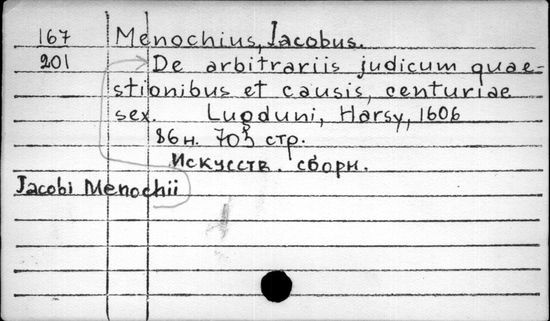 167 Menochius, Jacobus.
201 De arbitrariis judicum quae-
stionibus et causis, centuriae
sex. Lugduni, Harsy, 1606
86н. 703 стр.
Искусств. сборн.
Jacobi Menochii